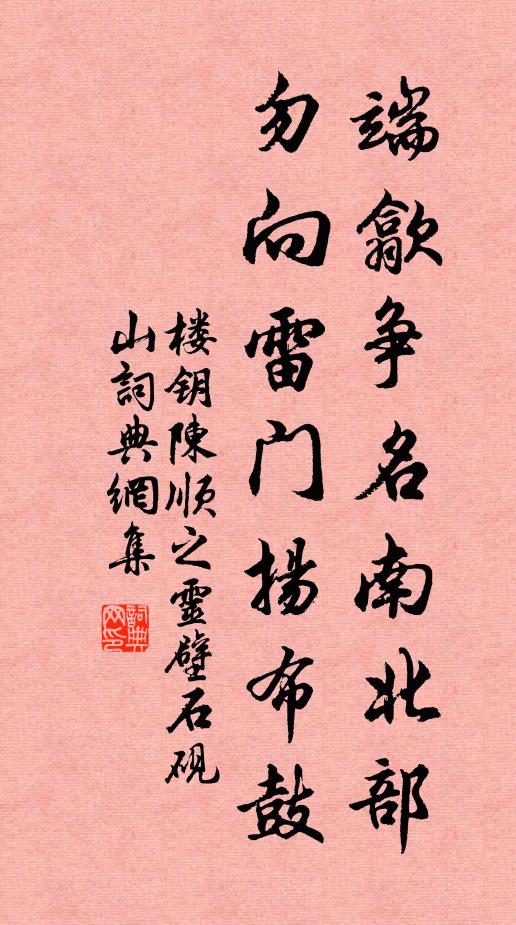 端歙争名南北部
勿向雷门揚布鼓
楼钥陳順之靈壁石硯
山詞典網集
詞典网印